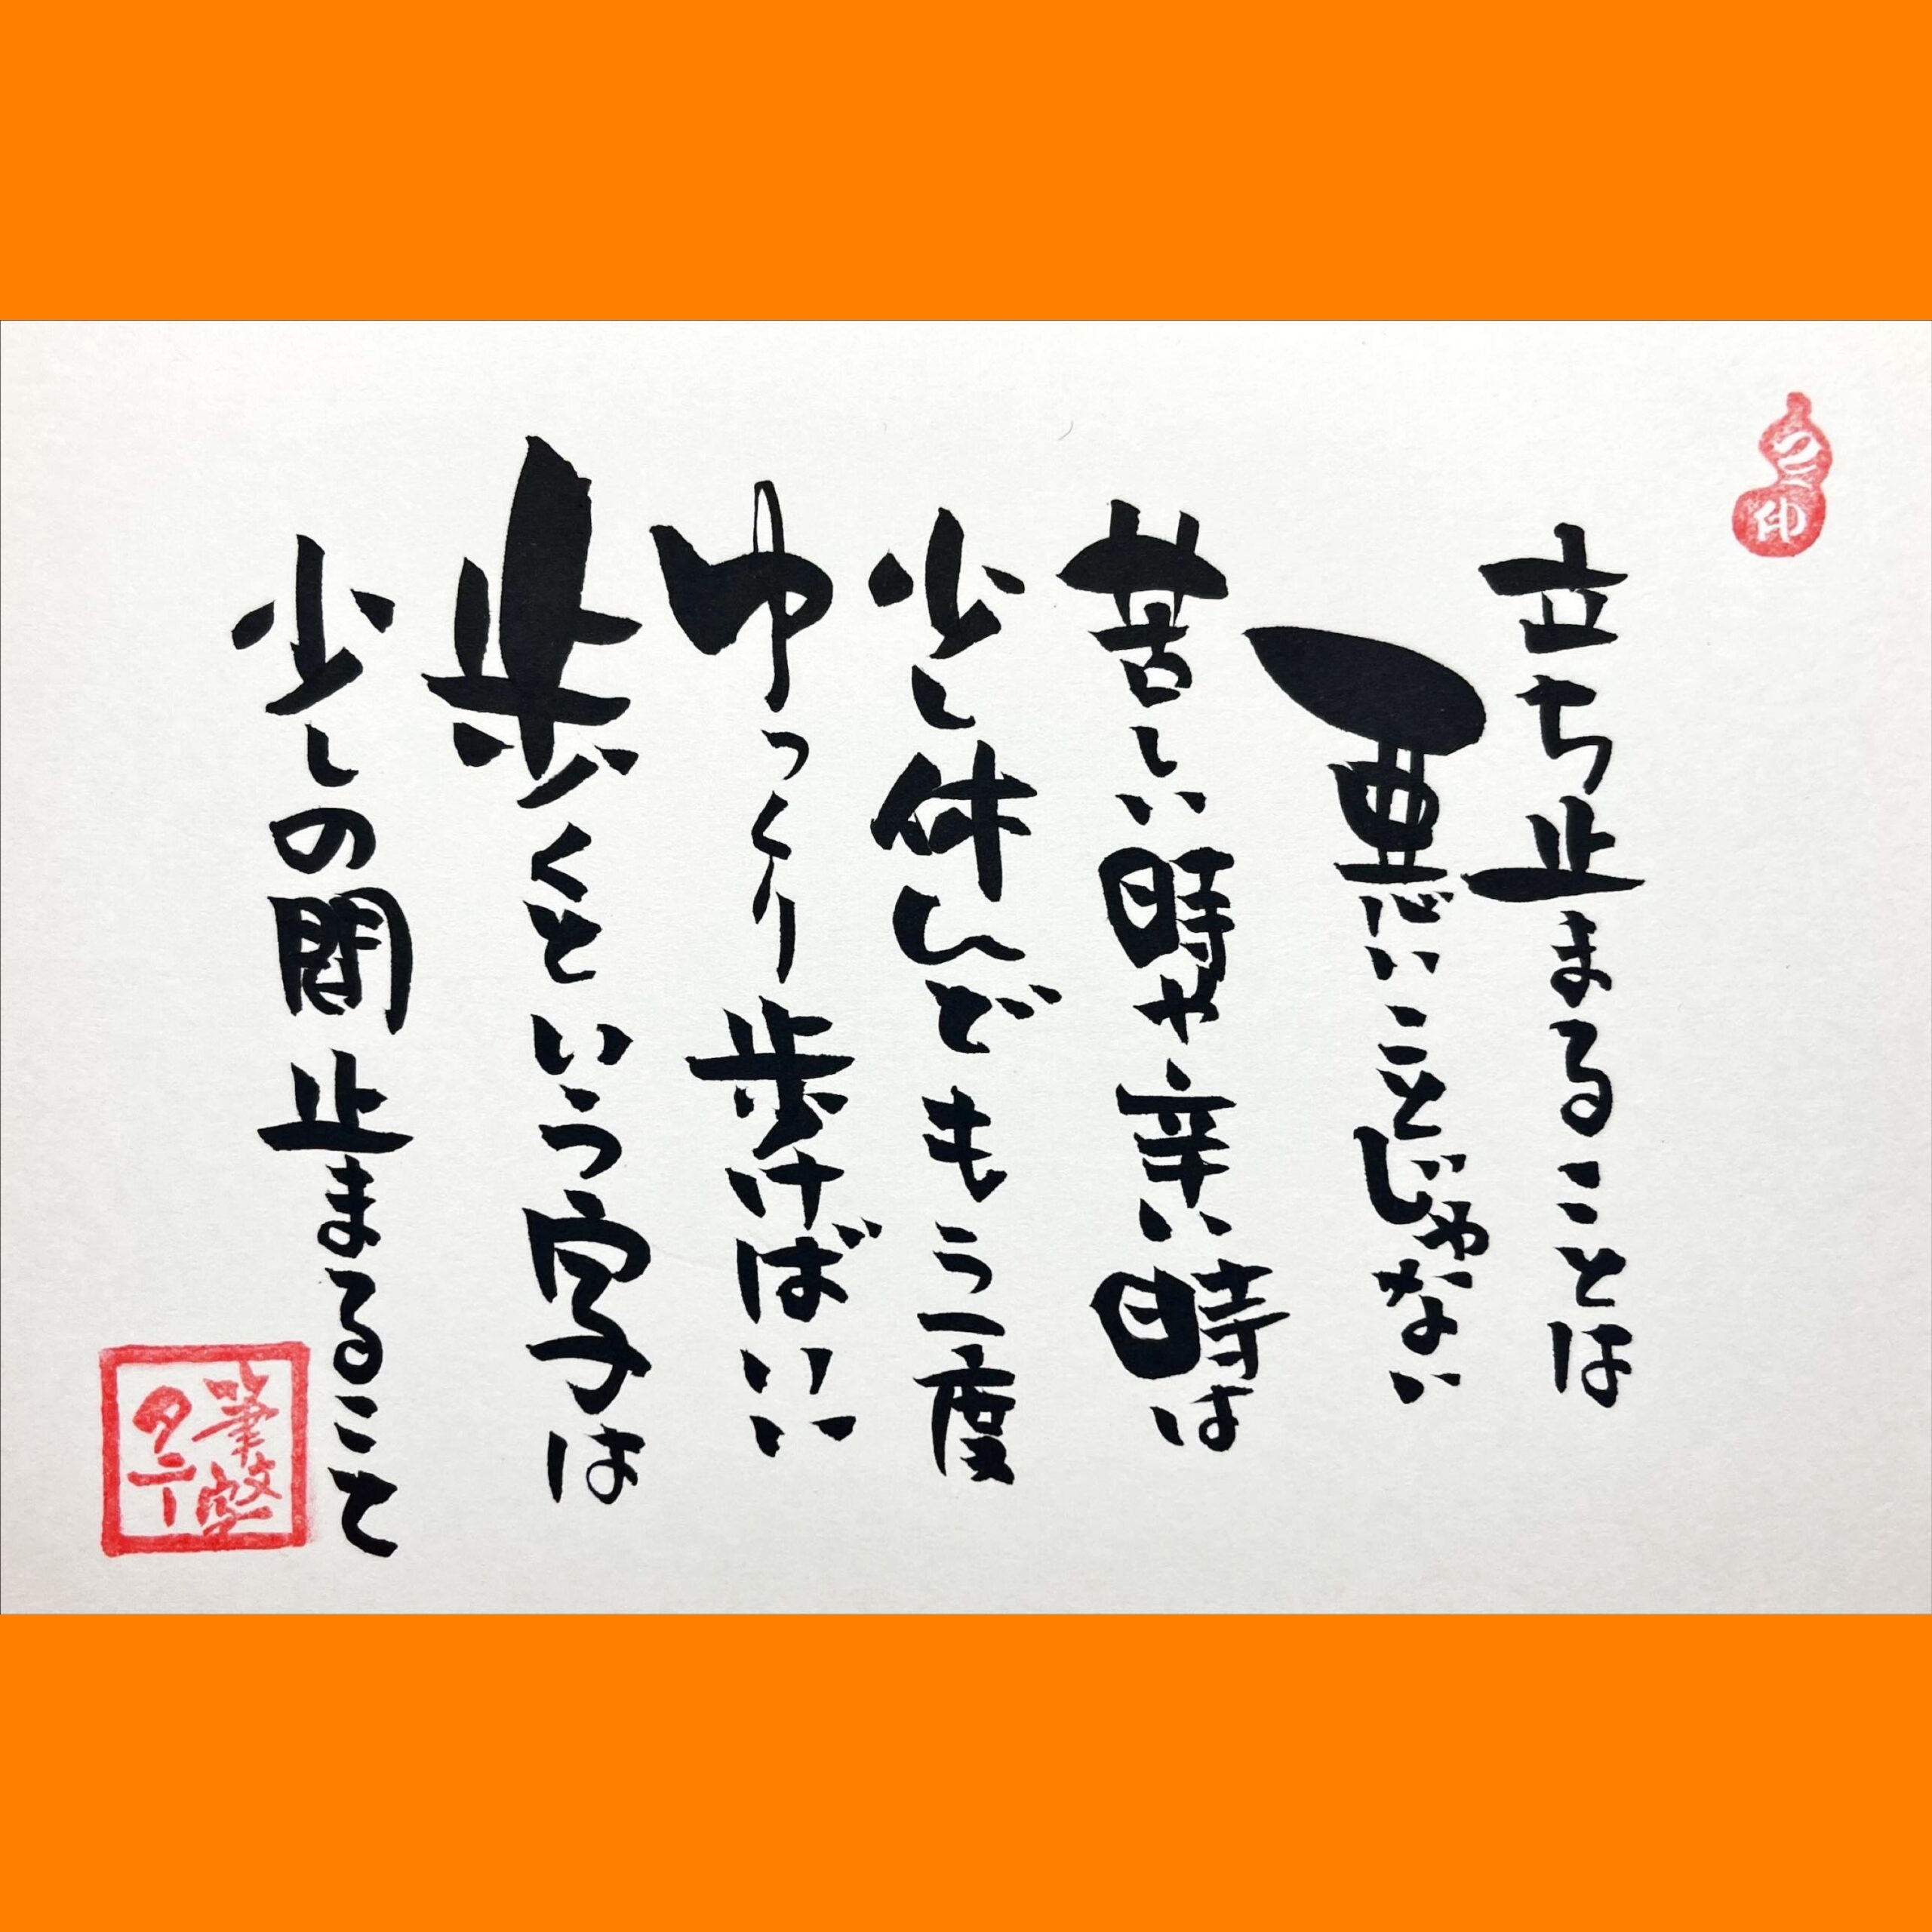 立ち止まることは
悪いことじゃない
苦しい時や辛い時は
少し休んでもう一度
ゆっくり歩けばいい
歩くという字は
少しの間止まること